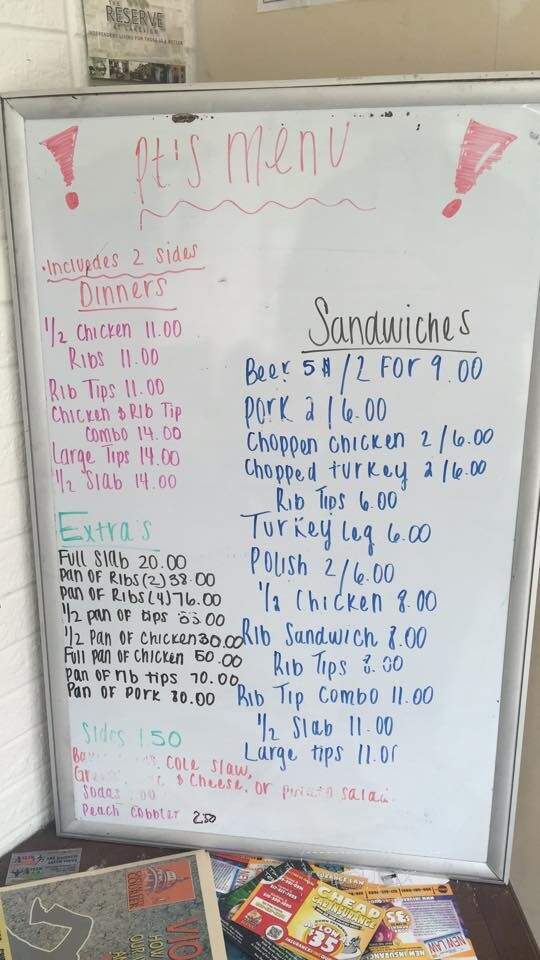 THE
RESERVE
AT LAKEVIEW
INDEPENDENT LIVING FOR THOSE 55 & BETTER
Pt's Menu
•Includes 2 sides
Dinners
1/2 Chicken 11.00
Ribs 11.00
Rib Tips 11.00
Chicken & Rib Tip
Combo 14.00
Large Tips 14.00
1/2 Slab 14.00
Extra's
Full Slab 20.00
Pan of Ribs(2) 38.00
Pan of Ribs(4) 76.00
1/2 pan of tips
1/2 Pan of Chicken 30.00
Full pan of Chicken 50.00
Pan of rib tips 70.00
Pan of Pork 80.00
Sides 1.50
Cole slaw,
& Cheese, or potato salad
Sodas
Peach Cobbler 2.50
Sandwiches
Beef 5$/2 For 9.00
Pork 2/6.00
Choppen Chicken 2/6.00
Chopped turkey 2/6.00
Rib Tips 6.00
Turkey Leg 6.00
Polish 2/6.00
1/2 Chicken 8.00
Rib Sandwich 8.00
Rib Tips 8.00
Rib Tip Combo 11.00
1/2 Slab 11.00
Large tips 11.00
VIO
HOW
CHEAP
CAR INSURANCE
LOW
35
NEW LAW